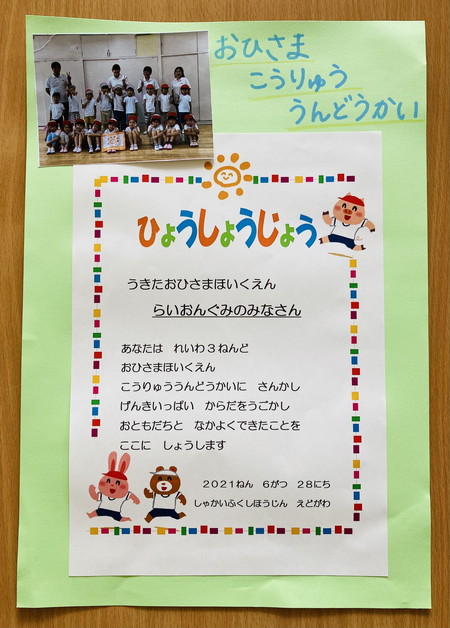 おひさま
こうりゅう
うんどうかい
ひょうしょうじょう
うきたおひさまほいくえん
らいおんぐみのみなさん
あなたは れいわ3ねんど
おひさまほいくえん
こうりゅううんどうかいに さんかし
げんきいっぱい からだをうごかし
おともだちと なかよくできたことを
ここに しょうします
2021ねん 6がつ 28にち
しゃかいふくしほうじん えどがわ